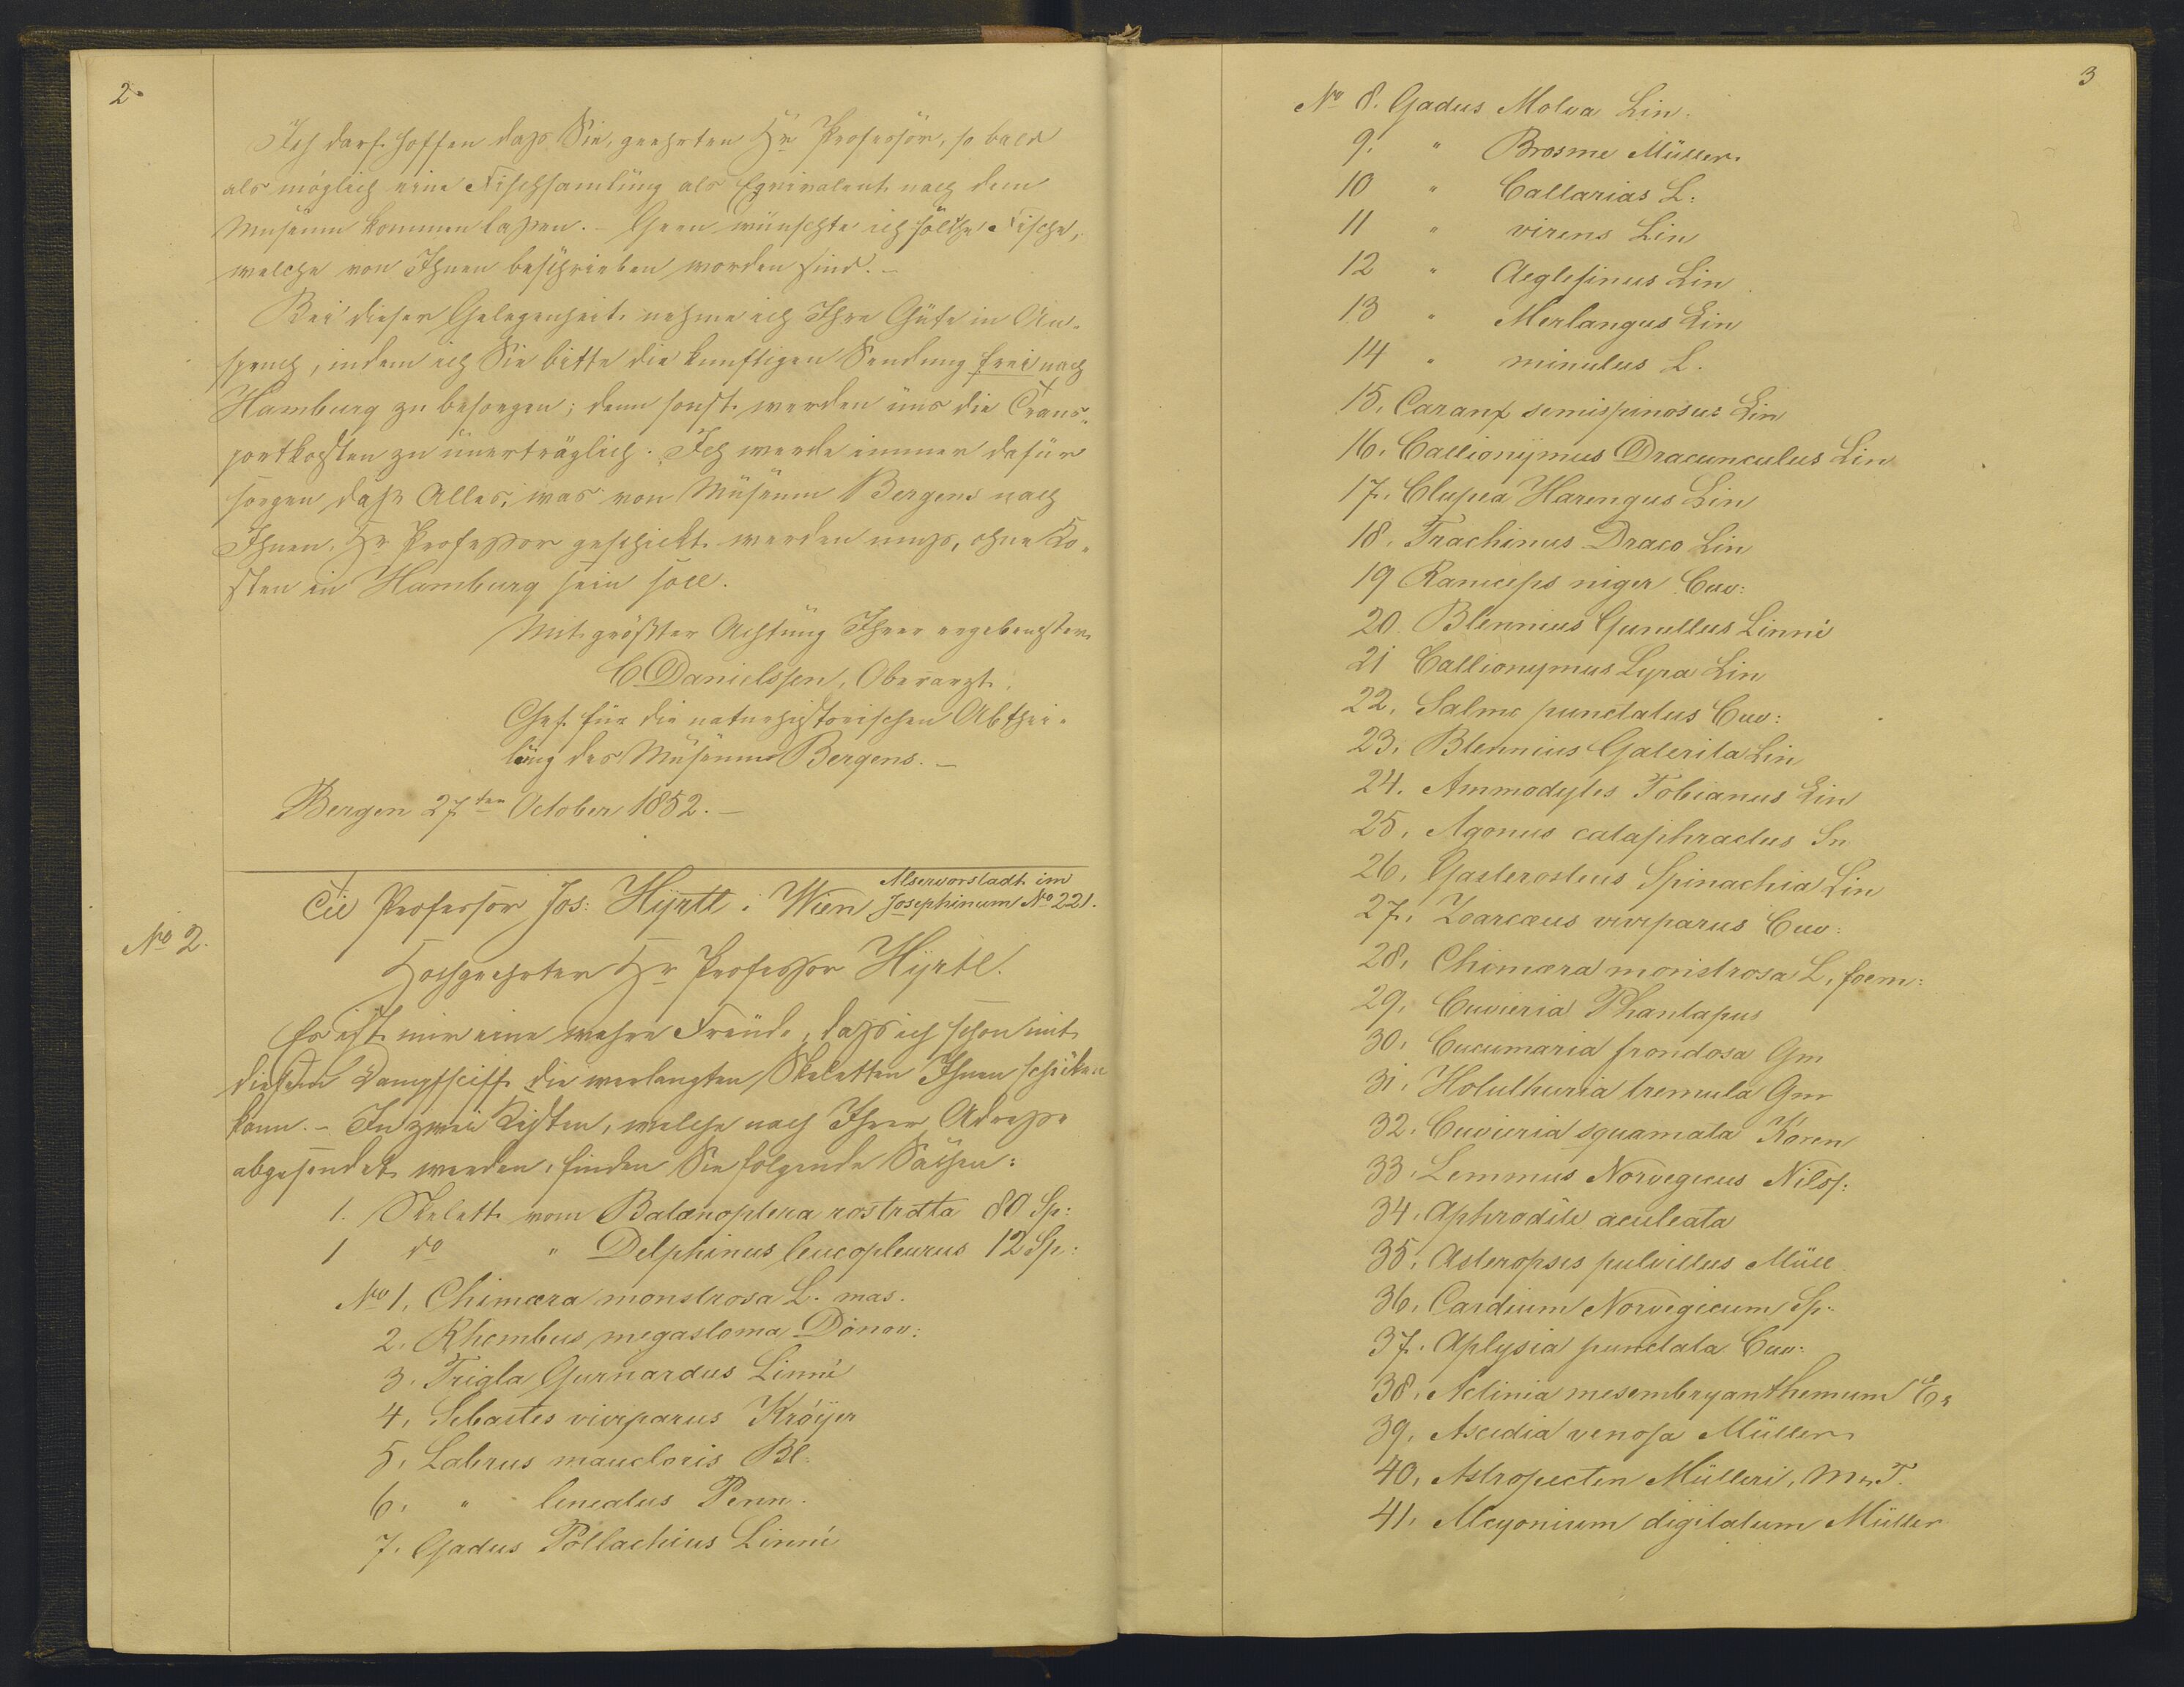 2.
Ich darf hoffen daß Sie, geehrter Hr Professor, so bald
als möglich eine Fischsamlung als Eqvivalent nach dem
Museum kommen laßen. – Gern wünschte ich solche Fische,
welche von Ihnen beschrieben worden sind. –
Bei dieser Gelegenheit nehme ich Ihre Güte in An-
spruch, indem ich Sie bitte die kunftigen Sendung frei nach
Hamburg zu besorgen; denn sonst werden uns die Trans-
portkosten zu unerträglich. Ich werde immer dafür
sorgen daß Alles, was von Museum Bergens nach
Ihnen, Hr Professor geschickt werden muß, ohne Ko-
sten in Hamburg sein soll.
Mit größter Achtung Ihrer ergebenster
C Danielssen, Oberarzt,
Chef für die naturhistorischen Abthei-
lung des Museums Bergens. –
Bergen 27ten October 1852. –
No 2.
Til Professor Jos: Hyrtl i Wien Alservorstadt im
Josephinum No 221.
Hochgeehrter Hr Professor Hyrtl.
Es ist mir eine wahre Freude, daß ich schon mit
diesem Dampfsciff die verlangten Skeletten Ihnen schicken
kann. – In zwei Kisten, welche nach Ihrer Adresse
abgesendet werden, finden Sie folgende Sachen:
1. Skelett vom Balænoptera rostrata 80 Sp:
1 do " Delphinus leucopleurus 12 Sp:
No 1, Chimæra monstrosa L. mas.
2. Rhombus megastoma Donov:
3. Trigla Gurnardus Linné
4, Sebastes viviparus Krøÿer
5, Labrus maucloris Bl.
6, " lineatus Penn.
7. Gadus Pollachius Linné
3
No 8. Gadus Molva Lin.
9. " Brosme Müller.
10 " Callarias L.
11 " virens Lin
12 " Aeglefinus Lin
13 " Merlangus Lin
14 " minutus L.
15, Caranx semispinosus Lin
16, Callionÿmus Dracunculus Lin
17, Clupea Harengus Lin
18, Trachinus Draco Lin
19 Raniceps niger Cuv:
20. Blennius Gunellus Linné
21 Callionymus Lyra Lin
22, Salmo punctatus Cuv:
23, Blennius Galerita Lin
24. Ammodytes Tobianus Lin
25, Agonus cataphractus Sn
26, Gasterosteus Spinachia Lin
27, Zoarcæus viviparus Cuv:
28, Chimæra monstrosa L, foem:
29, Cuvieria Phantapus
30, Cucumaria frondosa Gm
31, Holuthuria tremula Gm
32. Cuvieria squamata Koren
33, Lemmus Norvegicus Nilss:
34, Aphrodite aculeata
35, Asteropsis pulvillus Müll
36, Cardium Norvegicum Sp.
37. Aplysia punctata Cuv:
38, Actinia mesembryanthemum
39, Ascidia venosa Müller
40, Astropecten Mülleri, M&T.
41, Alcyonium digitatum Müller